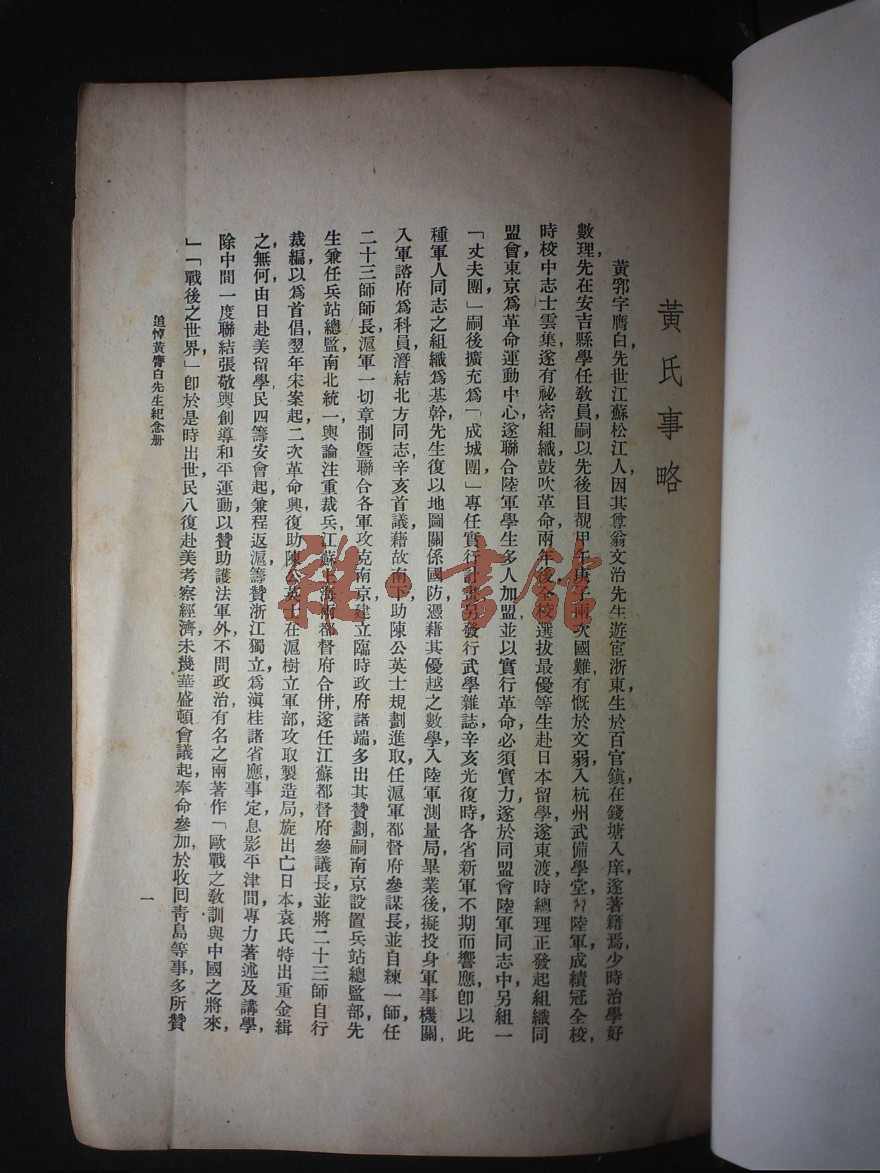 黃氏事略
黃郛字膺白先世江蘇松江人因其尊翁文治先生遊宦浙東生於百官鎮在錢塘入庠遂著籍焉少時治學好
數理先在安吉縣學任敎員嗣以先後目覩甲午庚子兩次國難有慨於文弱入杭州武備學堂習陸軍成績冠全校
時校中志士雲集遂有祕密組織鼓吹革命兩年後全校選拔最優等生赴日本留學遂東渡時總理正發起組織同
盟會東京爲革命運動中心遂聯合陸軍學生多人加盟並以實行革命必須實力遂於同盟會陸軍同志中另組一
「丈夫團」嗣後擴充爲「成城團」專任實行計畫另發行武學雜誌辛亥光復時各省新軍不期而響應卽以此
種軍人同志之組織爲基幹先生復以地圖關係國防憑藉其優越之數學入陸軍測量局畢業後擬投身軍事機關
入軍諮府爲科員潛結北方同志辛亥首議藉故南下助陳公英士規劃進取任滬軍都督府參謀長並自練一師任
二十三師師長滬軍一切章制曁聯合各軍攻克南京建立臨時政府諸端多出其贊劃嗣南京設置兵站總監部先
生兼任兵站總監南北統一輿論注重裁兵江蘇上海兩都督府合併遂任江蘇都督府參議長並將二十三師自行
裁編以爲首倡翌年宋案起二次革命興復助陳公英士在滬樹立軍部攻取製造局旋出亡日本袁氏特出重金緝
之無何由日赴美留學民四籌安會起兼程返滬籌贊浙江獨立爲滇桂諸省應事定息影平津間專力著述及講學
除中間一度聯結張敬輿創導和平運動以贊助護法軍外不問政治有名之兩著作「歐戰之敎訓與中國之將來
」「戰後之世界」卽於是時出世民八復赴美考察經濟未幾華盛頓會議起奉命參加於收回靑島等事多所贊
追悼黃膺白先生紀念册
一
雜·書館